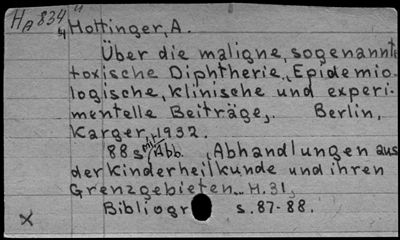 HA 834
Hottinger, A.
Über die maligne, sogenannte
toxische Diphtherie. Epidemio-
logische, klinische und experi-
mentelle Beiträge,. Berlin,
Karger, 1932.
88s mit Abb. (Abhandlungen aus
der Kinderheilkunde und ihren
Grenzgebieten... H.31,
Bibliogr s.87-88.
x